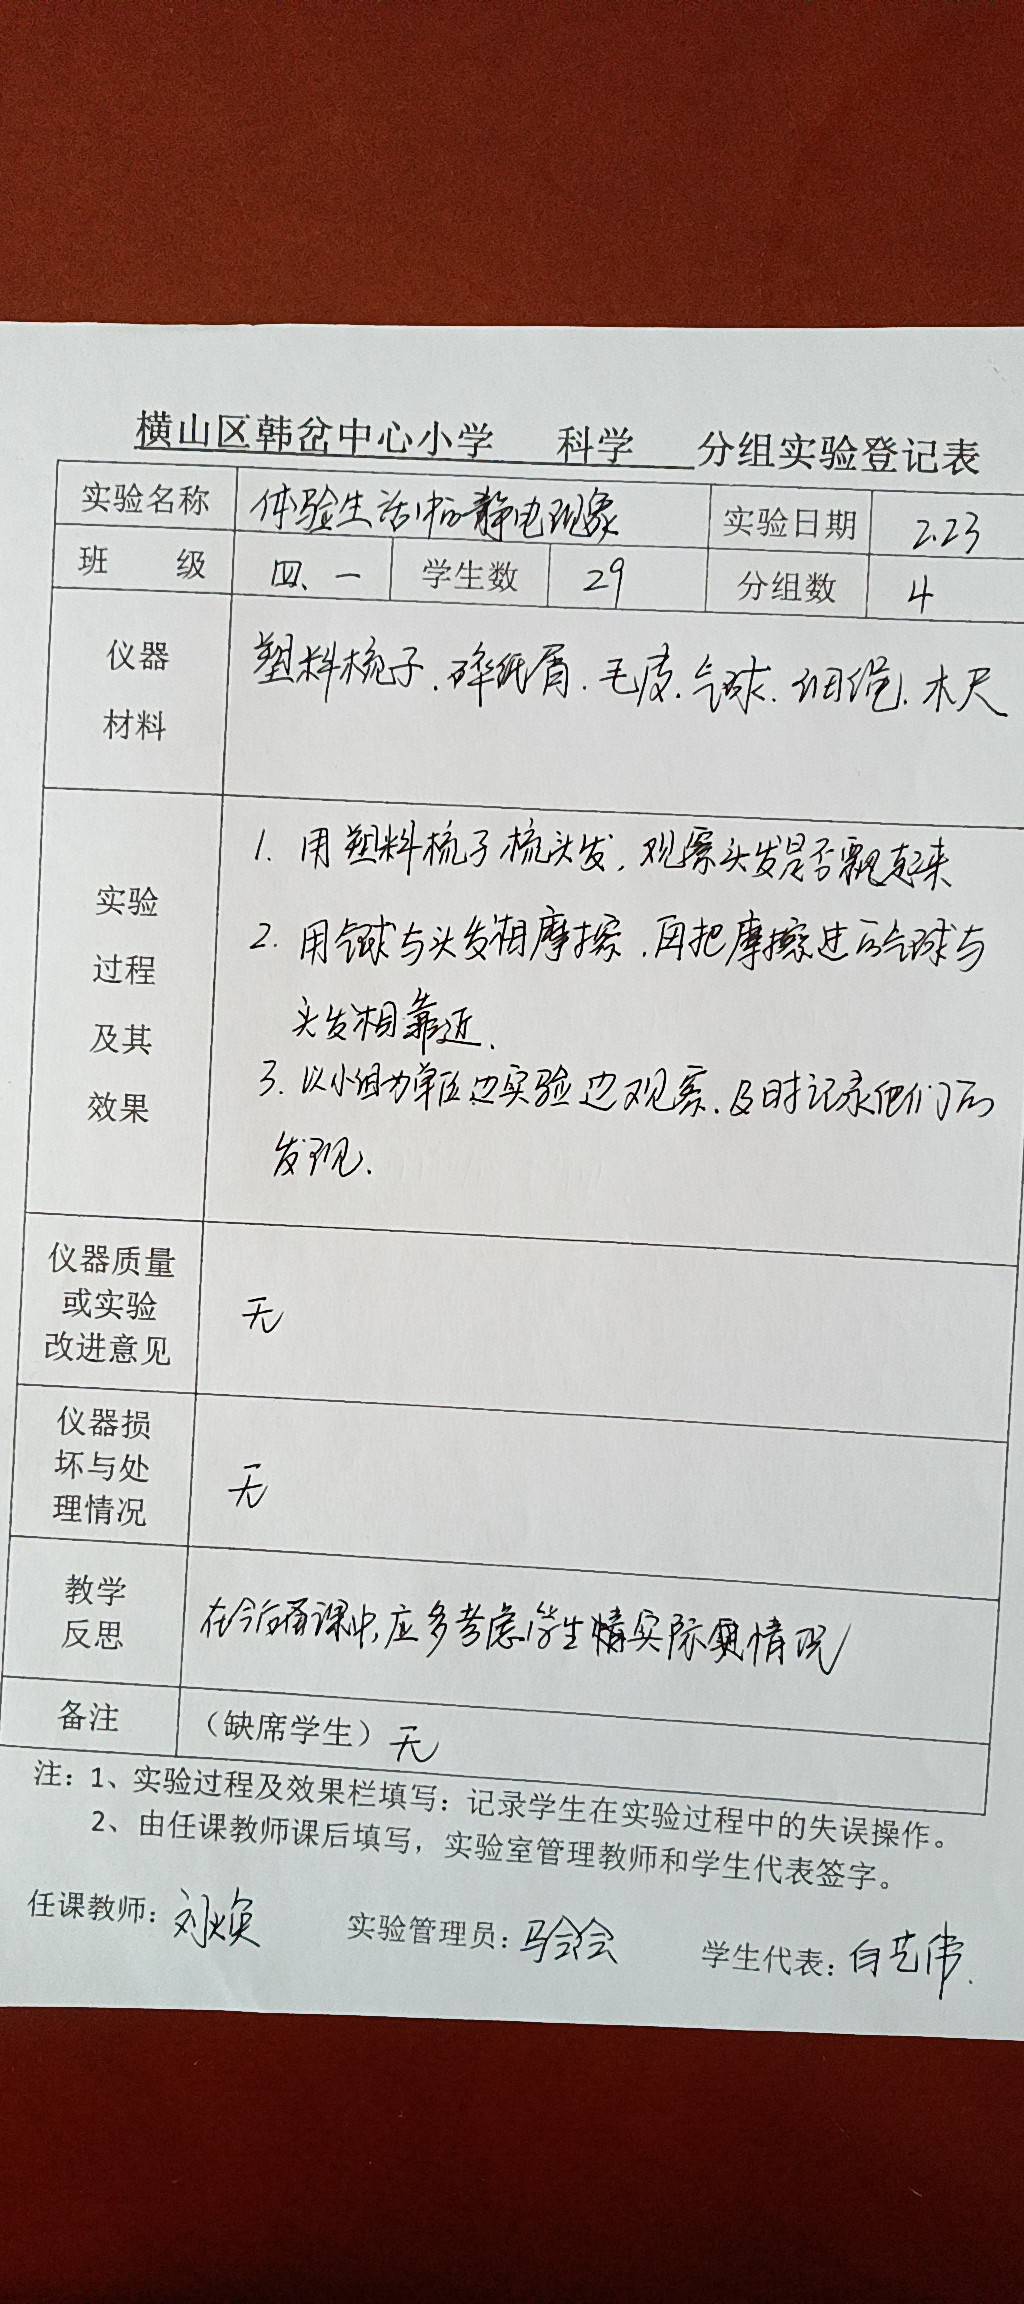 横山区韩岔中心小学 科学 分组实验登记表
实验名称 体验生活中的静电现象 实验日期 2.23
班 级 四、一 学生数 29 分组数 4
仪器
材料
塑料梳子、碎纸屑、毛皮、气球、细绳、木尺
实验
过程
及其
效果
1. 用塑料梳子梳头发,观察头发是否飘起来
2. 用气球与头发相摩擦,再把摩擦过的气球与
头发相靠近.
3. 以小组为单位边实验边观察,及时记录他们的
发现.
仪器质量
或实验
改进意见
无
仪器损
坏与处
理情况
无
教学
反思
在今后备课中,应多考虑学生实际情况
备注 (缺席学生)无
注:1、实验过程及效果栏填写:记录学生在实验过程中的失误操作。
2、由任课教师课后填写,实验室管理教师和学生代表签字。
任课教师:刘焕 实验管理员:马 学生代表:白艺伟.